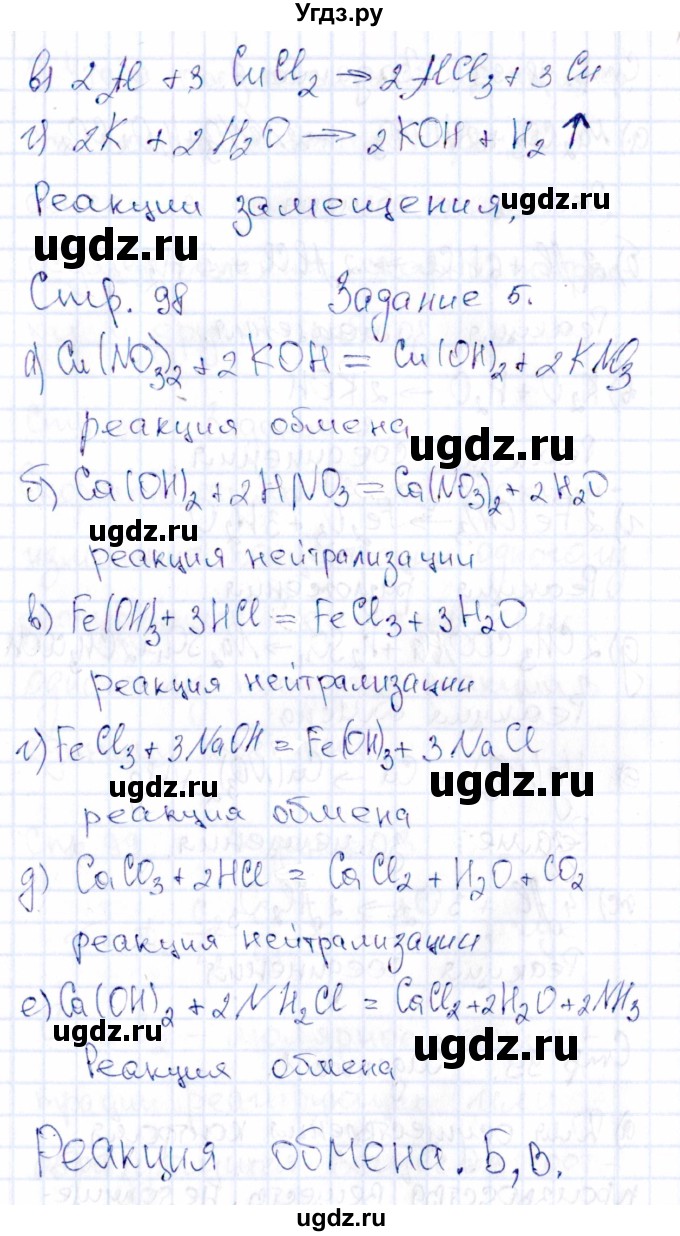 Угдз.ру
в) 2Al + 3 CuCl₂ → 2AlCl₃ + 3 Cu
г) 2K + 2H₂O → 2KOH + H₂ ↑
Реакции замещения,
ugdz.ru
ugdz.ru
Стр. 98 Задание 5.
а) Cu(NO₃)₂ + 2 KOH = Cu(OH)₂ + 2KNO₃
реакция обмена
ugdz.ru
б) Ca(OH)₂ + 2HNO₃ = Ca(NO₃)₂ + 2H₂O
ugdz.ru
реакция нейтрализации
в) Fe(OH)₃ + 3HCl = FeCl₃ + 3H₂O
реакция нейтрализации
г) FeCl₃ + 3NaOH = Fe(OH)₃ + 3NaCl
ugdz.ru
ugdz.ru
реакция обмена
д) CaCO₃ + 2HCl = CaCl₂ + H₂O + CO₂
реакция нейтрализации
е) Ca(OH)₂ + 2NH₂Cl = CaCl₂ + 2H₂O + 2NH₃
ugdz.ru
ugdz.ru
Реакция обмена
Реакция обмена. Б, В.
ugdz.ru